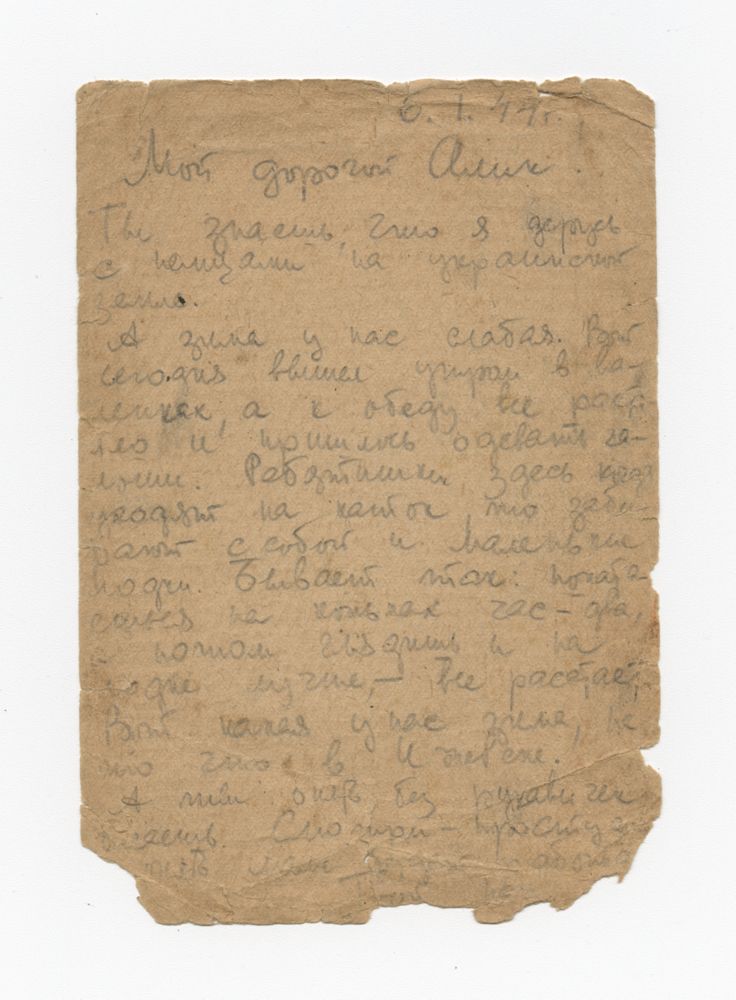 6.1.44г.
Мой дорогой Алик.
Ты знаешь, что я дерусь
с немцами на украинской
земле.
А зима у нас слабая. Вот
сегодня вышел утром в ва-
ленках, а к обеду все раста-
яло и пришлось одевать га-
лоши. Ребятишки здесь когда
уходят на каток, то заби-
рают с собой и маленькие
лодки. Бывает так: поката-
ешься на коньках час-два,
а потом глядишь и на
лодке лучше, – все растает.
Вот какая у нас зима, не
то что в Ижевске.
А ты опять без рукавичек
бегаешь. Смотри – простудишь
маме